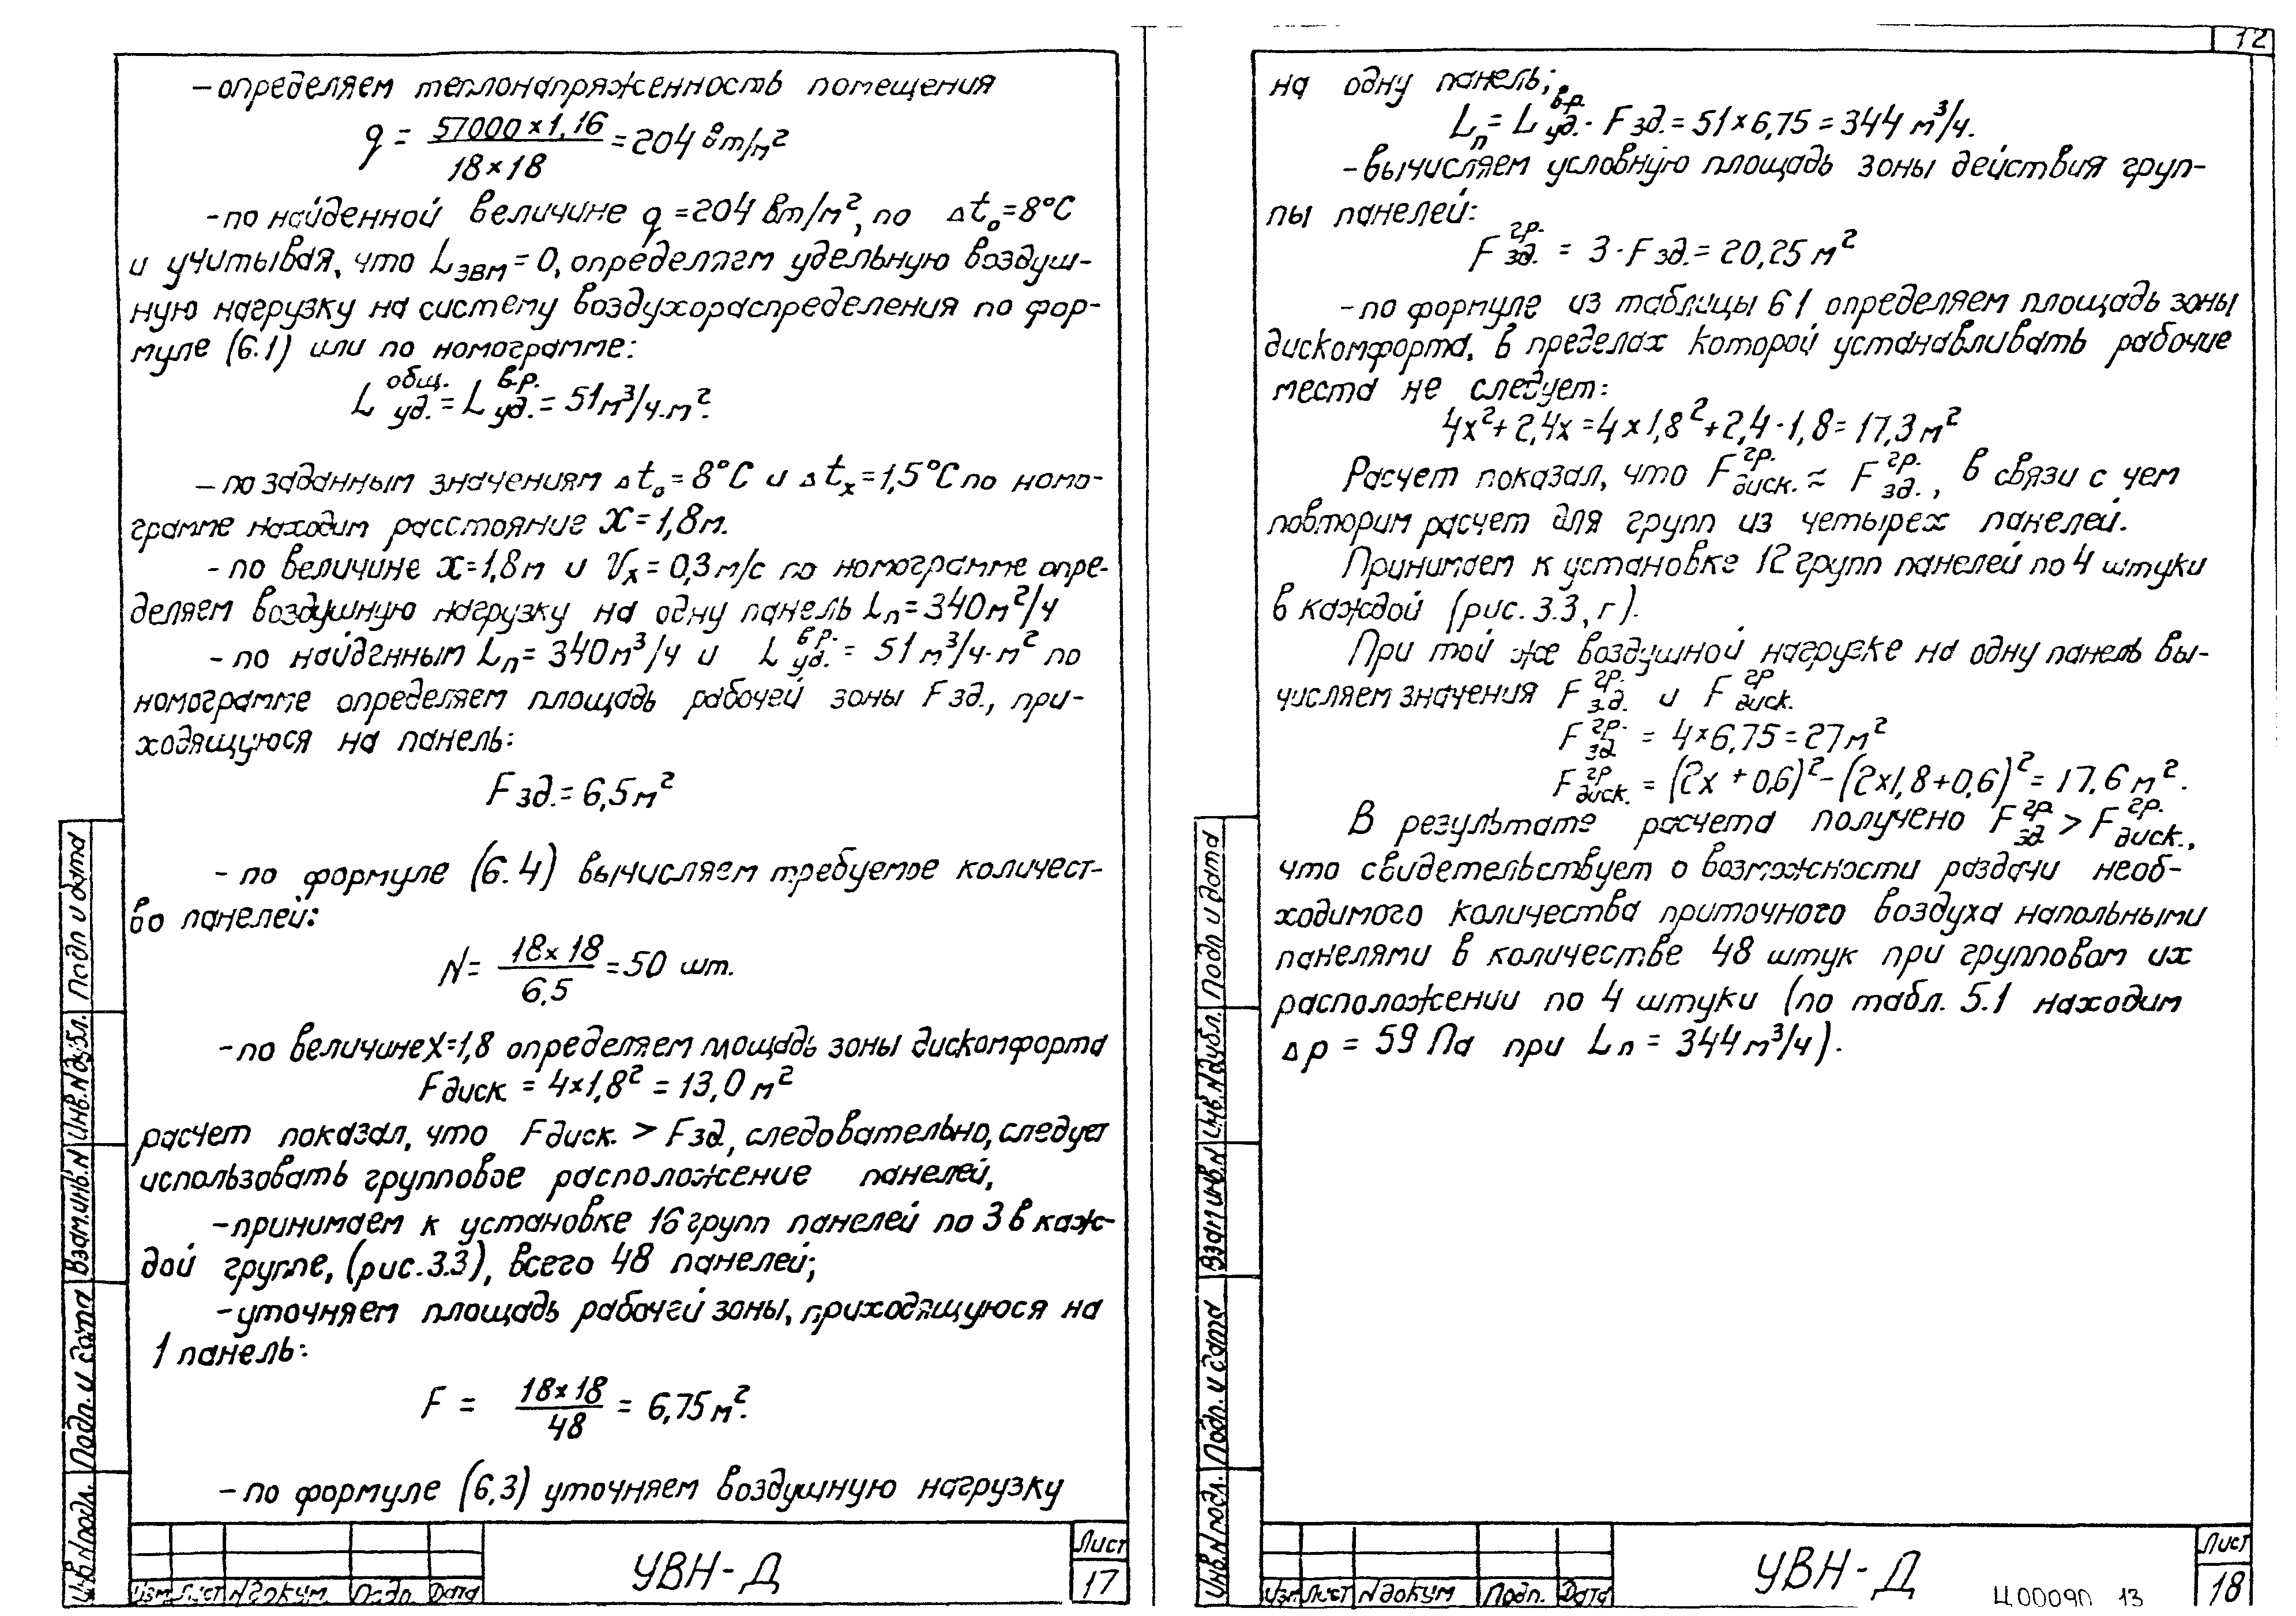 – определяем теплонапряженность помещения
q = 57000 × 1,16 / 18 × 18 = 204 Вт/м²
– по найденной величине q = 204 Вт/м², по Δt₀ = 8°С
и учитывая, что Lэвм = 0, определяем удельную воздуш-
ную нагрузку на систему воздухораспределения по фор-
муле (6.1) или по номограмме:
L общ. уд. = L в.р. уд. = 51 м³/ч·м².
– по заданным значениям Δt₀ = 8°С и Δtх = 1,5°С по номо-
грамме находим расстояние X = 1,8 м.
– по величине x = 1,8 м и Vх = 0,3 м/с по номограмме опре-
деляем воздушную нагрузку на одну панель Lп = 340 м²/ч
– по найденным Lп = 340 м³/ч и L в.р. уд. = 51 м³/ч·м² по
номограмме определяем площадь рабочей зоны Fзд., при-
ходящуюся на панель:
Fзд. = 6,5 м²
– по формуле (6.4) вычисляем требуемое количест-
во панелей:
N = 18 × 18 / 6,5 = 50 шт.
– по величине X = 1,8 определяем площадь зоны дискомфорта
Fдиск. = 4 × 1,8² = 13,0 м²
расчет показал, что Fдиск. > Fзд., следовательно, следует
использовать групповое расположение панелей,
– принимаем к установке 16 групп панелей по 3 в каж-
дой группе, (рис. 3.3), всего 48 панелей;
– уточняем площадь рабочей зоны, приходящуюся на
1 панель:
F = 18 × 18 / 48 = 6,75 м².
– по формуле (6,3) уточняем воздушную нагрузку
Инв.N подл. Подп. и дата Взам.инв.N Инв.N дубл. Подп и дата
Изм Лист N докум Подп. Дата
УВН-Д
Лист
17
12
на одну панель;
Lп = L в.р. уд. · Fзд. = 51 × 6,75 = 344 м³/ч.
– вычисляем условную площадь зоны действия груп-
пы панелей:
F гр. зд. = 3 · Fзд. = 20,25 м²
– по формуле из таблицы 6 1 определяем площадь зоны
дискомфорта, в пределах которой устанавливать рабочие
места не следует:
4x² + 2,4x = 4 × 1,8² + 2,4 · 1,8 = 17,3 м²
Расчет показал, что F гр. диск. ≈ F гр. зд., в связи с чем
повторим расчет для групп из четырех панелей.
Принимаем к установке 12 групп панелей по 4 штуки
в каждой (рис. 3.3, г).
При той же воздушной нагрузке на одну панель вы-
числяем значения F гр. зд. и F гр диск.
F гр. зд = 4 × 6,75 = 27 м²
F гр диск. = (2x + 0,6)² – (2x1,8 + 0,6)² = 17,6 м².
В результате расчета получено F гр зд > F гр. диск.,
что свидетельствует о возможности раздачи необ-
ходимого количества приточного воздуха напольными
панелями в количестве 48 штук при групповом их
расположении по 4 штуки (по табл. 5.1 находим
Δp = 59 Па при Lп = 344 м³/ч).
Инв.N подл. Подп. и дата Взам инв.N Инв.N дубл. Подп и дата
Изм Лист N докум Подп. Дата
УВН-Д
Лист
18
Ц00090 13